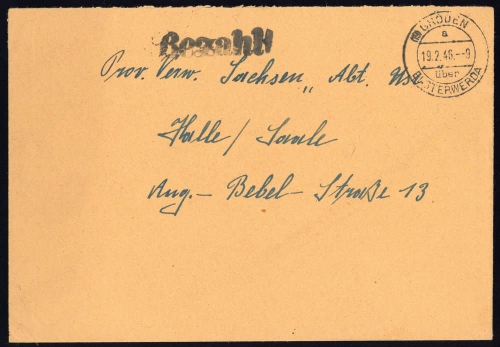 Bezahlt
GRÖDEN
a
19.2.46.--9
über
ELSTERWERDA
Prov. Verw. Sachsen, Abt.
Halle/Saale
Aug.- Bebel- Straße 13